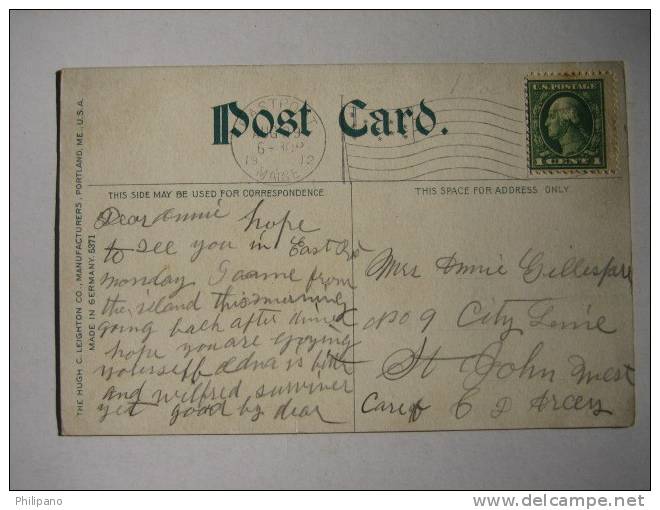 Post Card.
EASTPORT
6-30P
1912
MAINE
U.S. POSTAGE
1 CENT 1
THIS SIDE MAY BE USED FOR CORRESPONDENCE
THIS SPACE FOR ADDRESS ONLY.
THE HUGH C. LEIGHTON CO., MANUFACTURERS, PORTLAND, ME., U.S.A.
MADE IN GERMANY. 5371
Dear Annie hope
to see you in East
monday I came from
the island this morning
going back after dinner
hope you are
yourself Edna is
and wilfred
yet good by dear
Mrs Annie
No 9 City Line
St John West
Care of E D Arcey
Philipano
www.delcampe.net